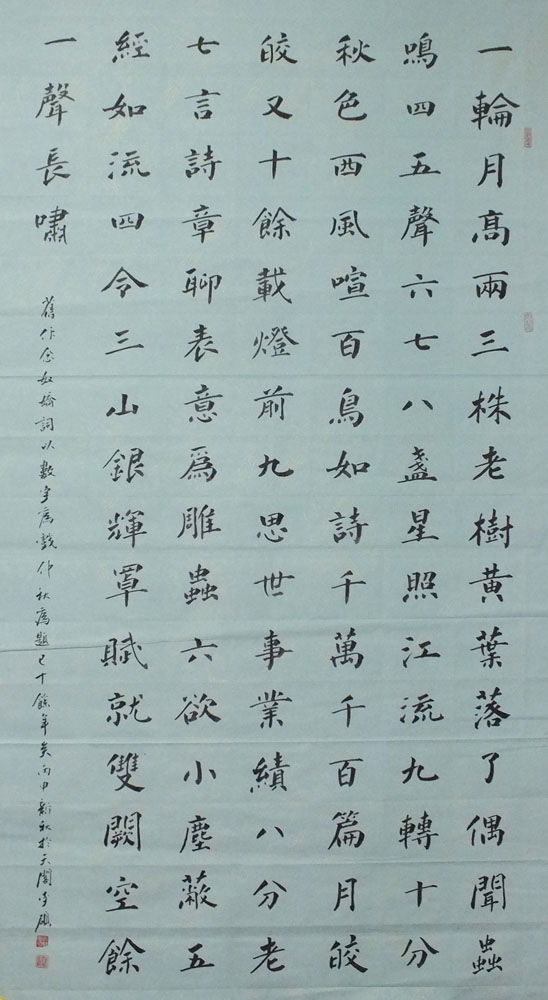 一輪月高兩三株老樹黃葉落了偶聞蟲
鳴四五聲六七八盞星照江流九轉十分
秋色西風喧百鳥如詩千萬千百篇月皎
皎又十餘載燈前九思世事業績八分老
七言詩章聊表意爲雕蟲六欲小塵蔽五
經如流四令三山銀輝罩賦就雙闕空餘
一聲長嘯
舊作念奴嬌詞以數字爲戲仲秋爲題已十餘年矣丙申新秋於天閣